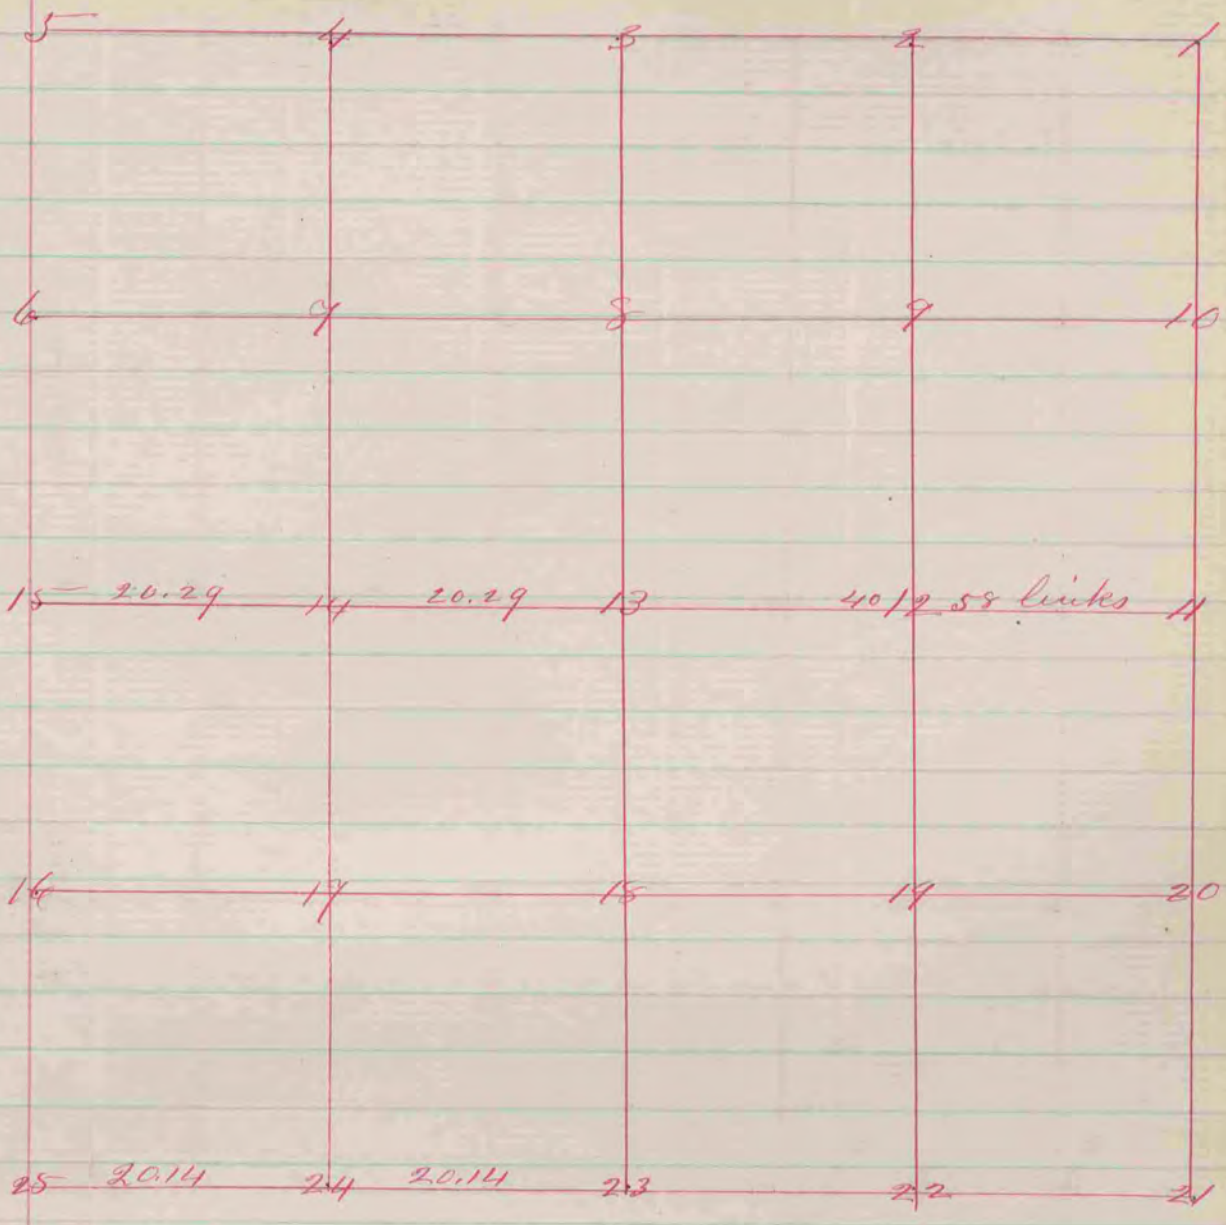 5 4 3 2 1
6 7 8 9 10
15 20.29 14 20.29 13 40 12 58 links 11
16 17 18 19 20
25 20.14 24 20.14 23 22 21